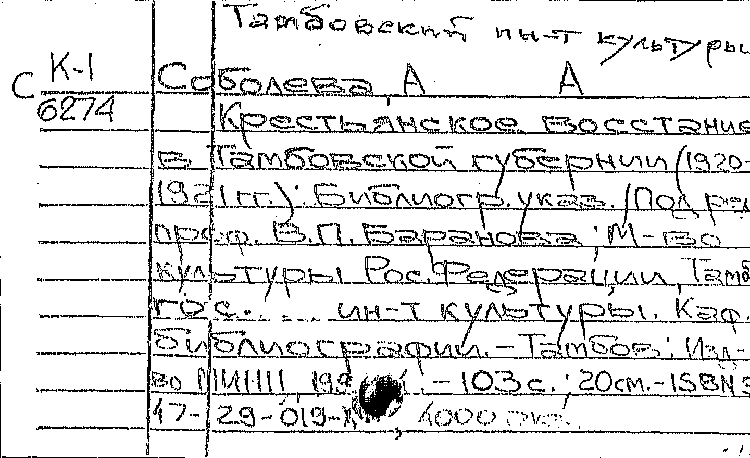 Тамбовский ин-т культуры
С К-1 Соболева А А
6274 Крестьянское восстание
в Тамбовской губернии (1920-
1921 гг.): Библиогр. указ. / Под ред
проф. В.П. Баранова; М-во
культуры Рос. Федерации, Тамб
гос. .... ин-т культуры. Каф.
библиографии. - Тамбов: Изд-
во - 103 с.; 20 см. - ISBN 5
47- 29-019- 4000 экз.